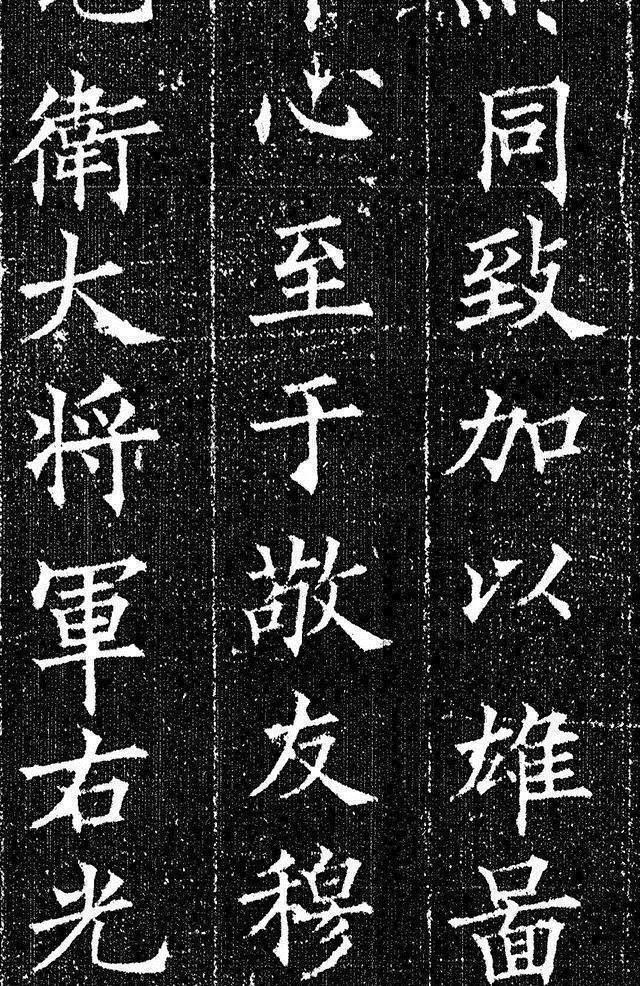 同致加以雄啚
心至于敬友穆
衛大将軍右光